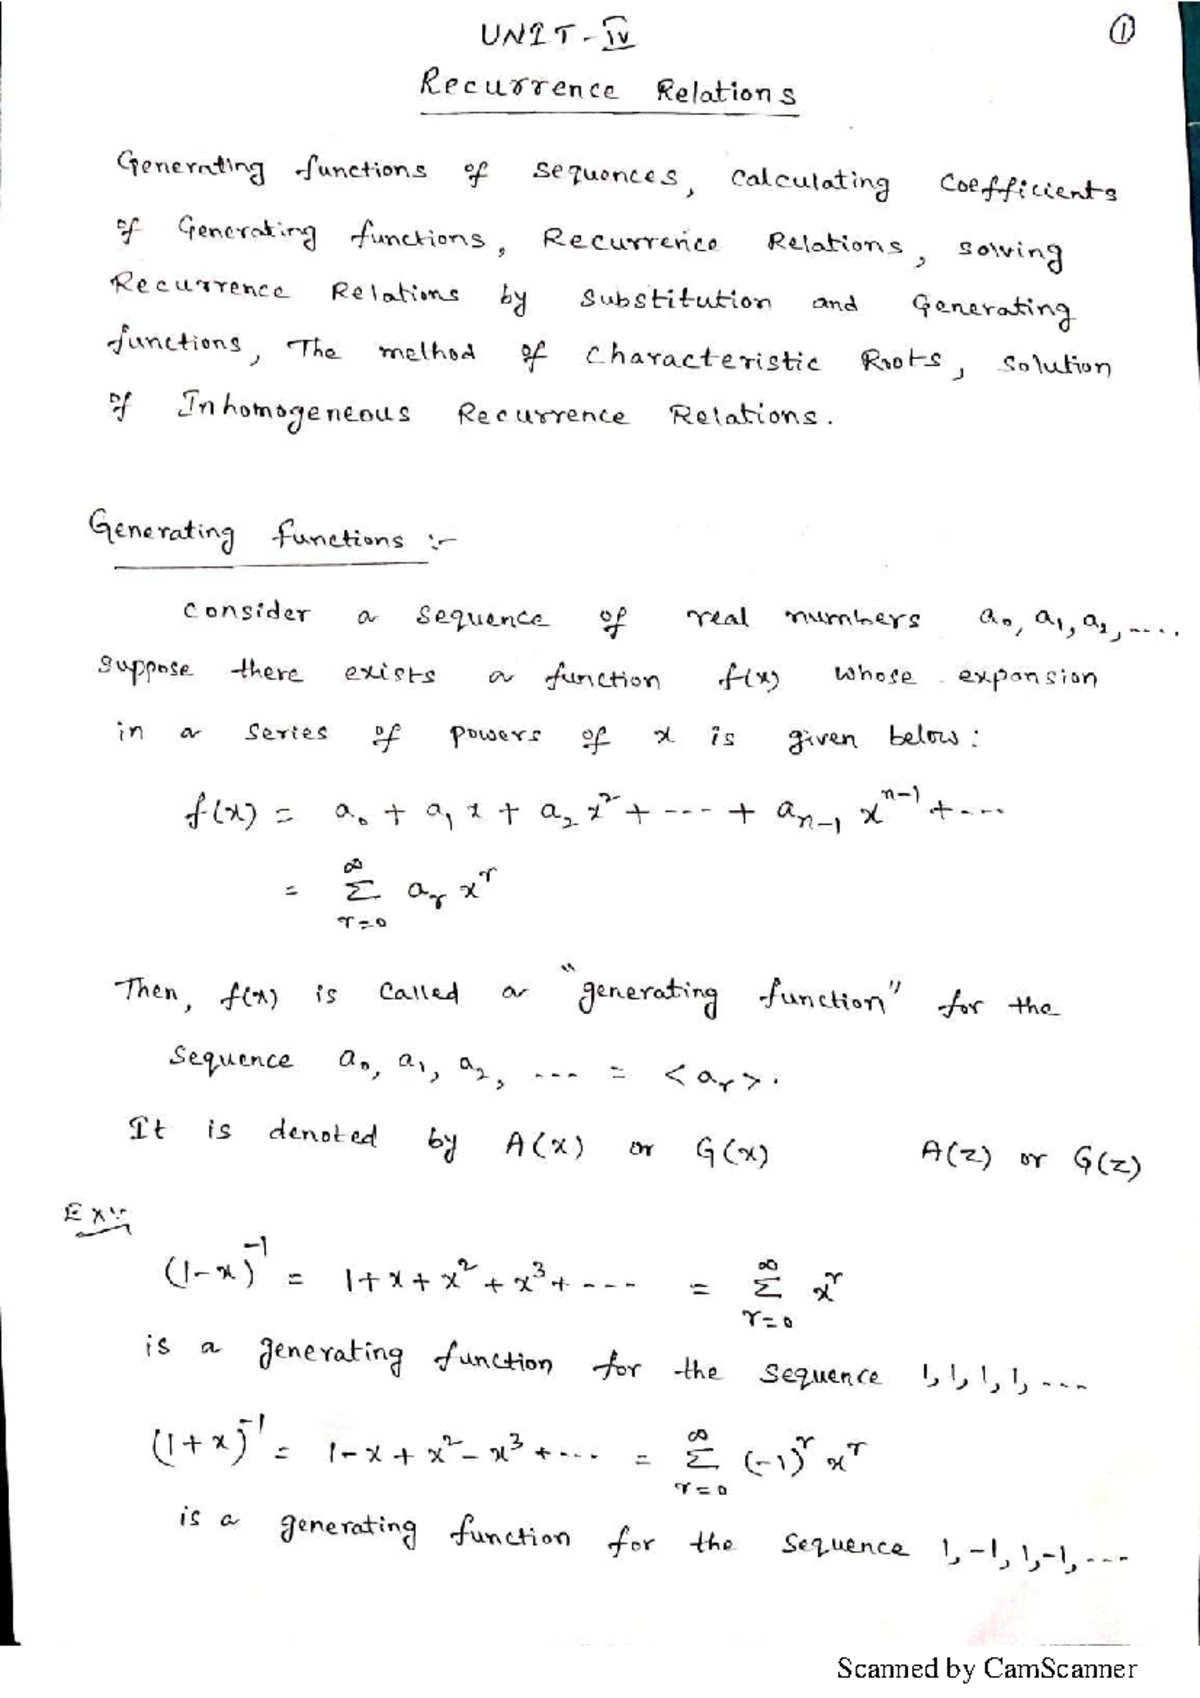 UNIT-IV
①
Recurrence Relations
Generating functions of sequences, Calculating Coefficients
of Generating functions, Recurrence Relations, solving
Recurrence Relations by substitution and Generating
functions, The method of Characteristic Roots, solution
of Inhomogeneous Recurrence Relations.
Generating functions :-
consider a sequence of real numbers a₀, a₁, a₂, ....
suppose there exists a function f(x) whose expansion
in a series of powers of x is given below:
f(x) = a₀ + a₁ x + a₂ x² + ---- + aₙ₋₁ xⁿ⁻¹ + ----
= ∞ Σ r=0 aᵣ xʳ
Then, f(x) is called a "generating function" for the
sequence a₀, a₁, a₂, --- = <aᵣ>.
It is denoted by A(x) or G(x) A(z) or G(z)
Ex:-
(1-x)⁻¹ = 1+x+x²+x³+---- = ∞ Σ r=0 xʳ
is a generating function for the sequence 1, 1, 1, 1, ----
(1+x)⁻¹ = 1-x+x²-x³+---- = ∞ Σ r=0 (-1)ʳ xʳ
is a generating function for the sequence 1, -1, 1, -1, ---
Scanned by CamScanner